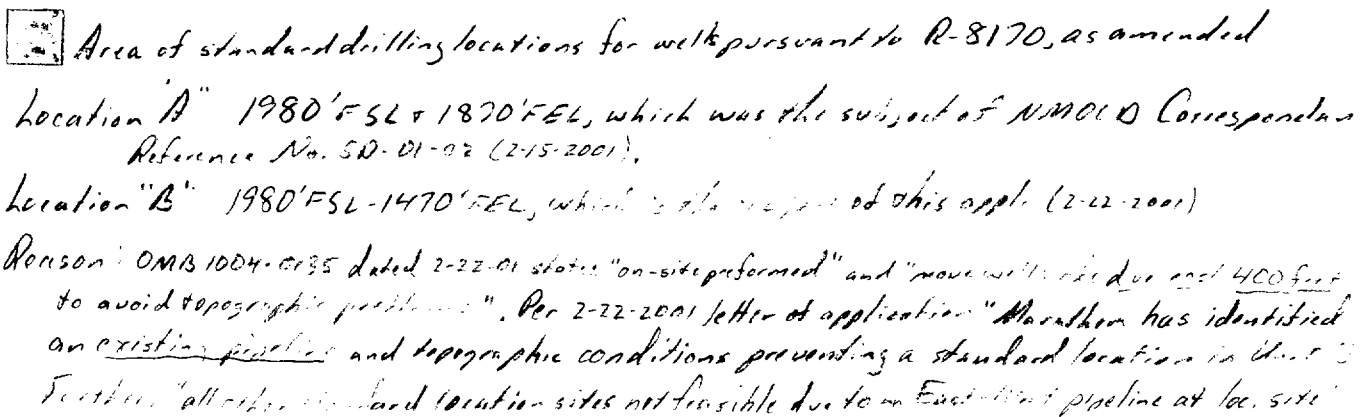 Area of standard drilling locations for wells pursuant to R-8170, as amended
Location "A" 1980' FSL & 1870' FEL, which was the subject of NMOCD Correspondan
Reference No. SD-01-02 (2-15-2001).
Location "B" 1980' FSL-1470' FEL, which of this appl. (2-22-2001)
Reason: OMB 1004-0135 dated 2-22-01 states "on-site preformed" and "move due east 400 feet
to avoid topographic ". Per 2-22-2001 letter of application "Marathon has identified
an existing pipeline and topographic conditions preventing a standard location in
Further "all other standard location sites not feasible due to an East-West pipeline at loc. site